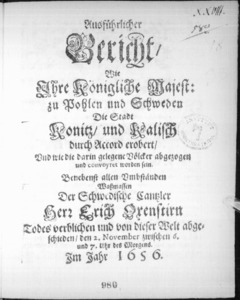 XXVII.
Ausführlicher
Bericht/
Wie
Ihre Königliche Majest:
zu Pohlen und Schweden
Die Stadt
Konitz/ und Kalisch
durch Accord erobert/
Und wie die darin gelegene Völcker abgezogen
und convoyret worden sein.
Benebenst allen Umbständen
Waßmassen
Der Schwedische Cantzler
Herr Erich Oxenstirn
Todes verblichen und von dieser Welt abge-
schieden/ den 2. November zwischen 6.
und 7. Uhr des Morgens.
Im Jahr 1656.
980